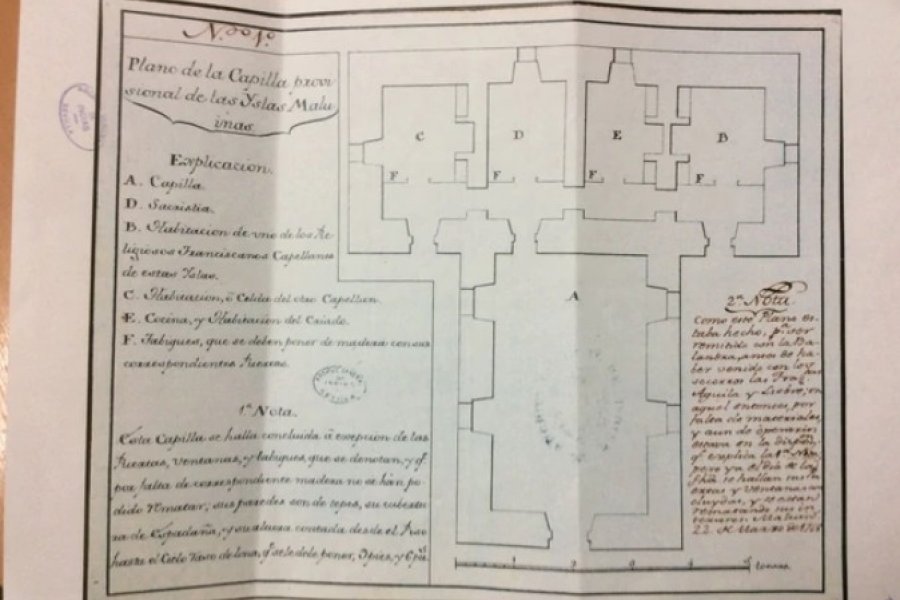 N.º 1.º
Plano de la Capilla provi
sional de las Yslas Malu
inas
Explicacion.
A. Capilla.
D. Sacristia.
B. Habitacion de vno de los Re-
ligiosos Franciscanos Capellanes
de estas Yslas.
C. Habitacion, ó Celda del otro Capellan.
E. Cocina, y Habitacion del Criado.
F. Tabiques, que se deben poner de madera con sus
correspondientes Puertas.
1.ª Nota.
Esta Capilla se halla concluida á excepcion de las
Puertas, ventanas, y tabiques, que se denotan, y q.e
por falta de correspondiente madera no se han po-
dido rematar; sus paredes son de tepes, su cubiertu
ra de Espadaña, y su altura contada desde el Piso
hasta el Cielo raso de lona, q.e se le debe poner, 9 pies, y 6 pul.s
C
D
E
B
F
F
F
F
A
2.ª Nota
Como este Plano es-
taba hecho, p.a ser
remitido con la Ba-
landra, antes de ha-
ber venido con los
socorros las Frag.tas
Aguila y Liebre; en
aquel entonces, por
falta de materiales,
y aun de operarios
estava en la
q.e explica la 1.ª Nota
pero ya el dia de la
se hallan
y ventanas con
cluydas, y se estan
rematando
22 de Marzo de